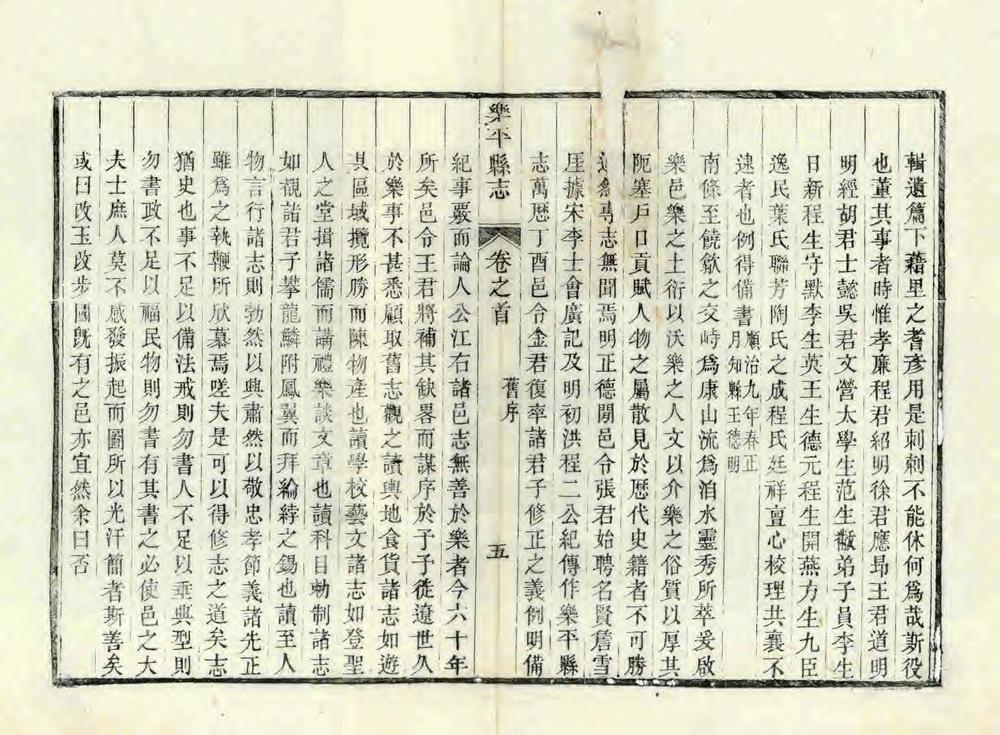 輯遺篇下藉里之耆彥用是刺刺不能休何爲哉斯役
也董其事者時惟孝廉程君紹明徐君應昂王君道明
明經胡君士懿吳君文營太學生范生黻弟子員李生
日新程生守默李生英王生德元程生開燕方生九臣
逸民葉氏聯芳陶氏之成程氏廷祥亶心校理共襄不
逮者也例得備書順治九年春正月知縣王德明
南條至饒歙之交峙爲康山流爲洎水靈秀所萃爰啟
樂邑樂之土衍以沃樂之人文以介樂之俗質以厚其
阨塞戶口貢賦人物之屬散見於歷代史籍者不可勝
專志無聞焉明正德間邑令張君始聘名賢詹雪
厓據宋李士會廣記及明初洪程二公紀傳作樂平縣
志萬歷丁酉邑令金君復率諸君子修正之義例明備
樂平縣志 卷之首 舊序 五
紀事覈而論人公江右諸邑志無善於樂者今六十年
所矣邑令王君將補其缺畧而謀序於予予徒遼世久
於樂事不甚悉顧取舊志觀之讀輿地食貨諸志如遊
其區域攬形勝而陳物產也讀學校藝文諸志如登聖
人之堂揖諸儒而講禮樂談文章也讀科目勅制諸志
如覩諸君子攀龍鱗附鳳翼而拜綸綍之錫也讀至人
物言行諸志則勃然以興肅然以敬忠孝節義諸先正
雖爲之執鞭所欣慕焉嗟夫是可以得修志之道矣志
猶史也事不足以備法戒則勿書人不足以垂典型則
勿書政不足以福民物則勿書有其書之必使邑之大
夫士庶人莫不感發振起而圖所以光汗簡者斯善矣
或曰改玉改步國旣有之邑亦宜然余曰否